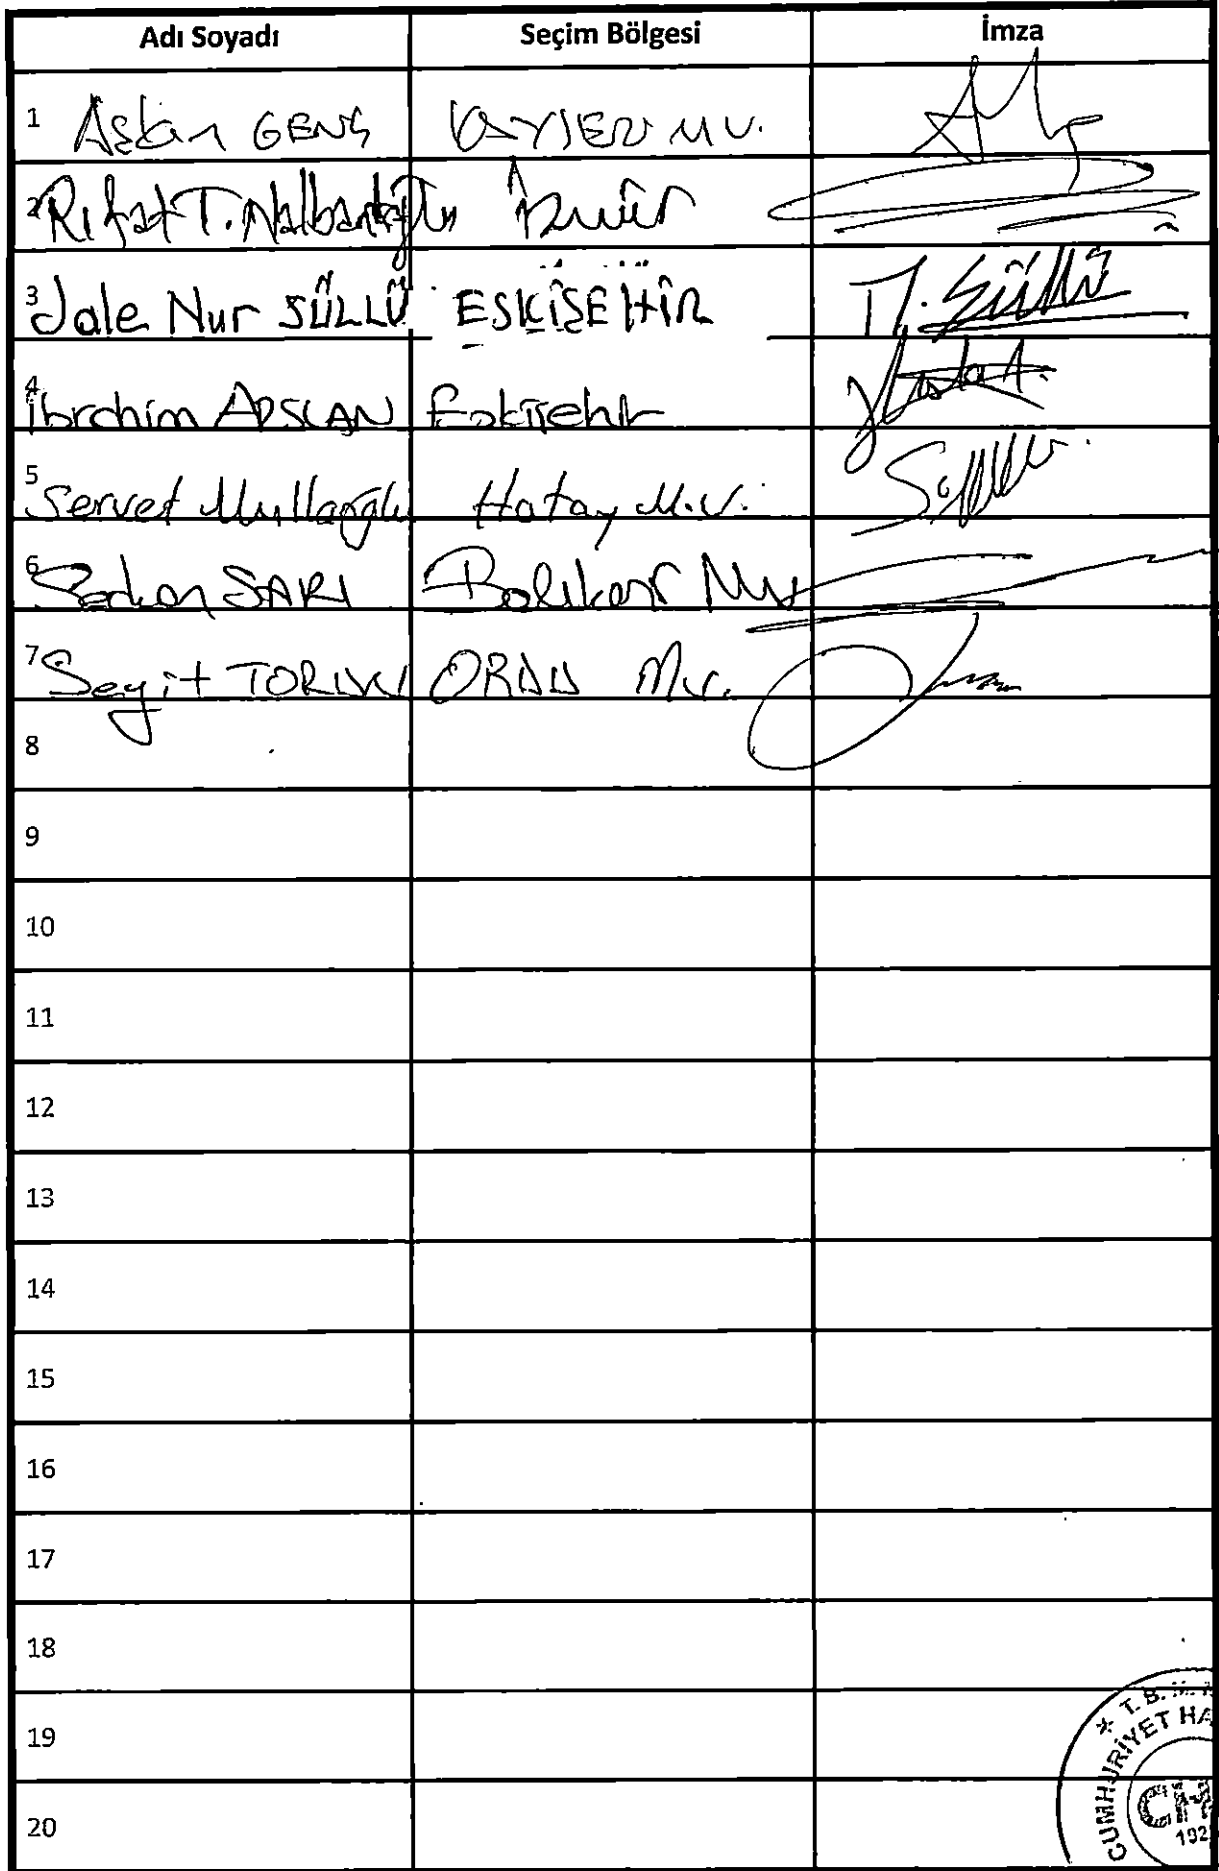 Adı Soyadı Seçim Bölgesi İmza
1 Aşkın GENÇ KAYSERİ MV.
2 Rıfat T. Nalbantoğlu İzmir
3 Jale Nur SÜLLÜ ESKİŞEHİR J. Süllü
4 İbrahim ARSLAN Eskişehir
5 Servet Mullaoğlu Hatay M.V.
6 Serkan SARI Balıkesir Mv
7 Seyit TORUN ORDU Mv.
8
9
10
11
12
13
14
15
16
17
18
19
20
* T.B.M.M
CUMHURİYET HA
CH
192